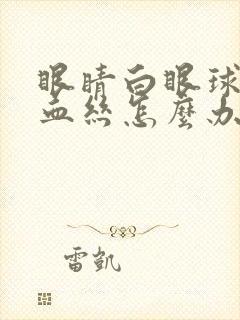 眼睛白眼球
血丝怎麼办
雷凯